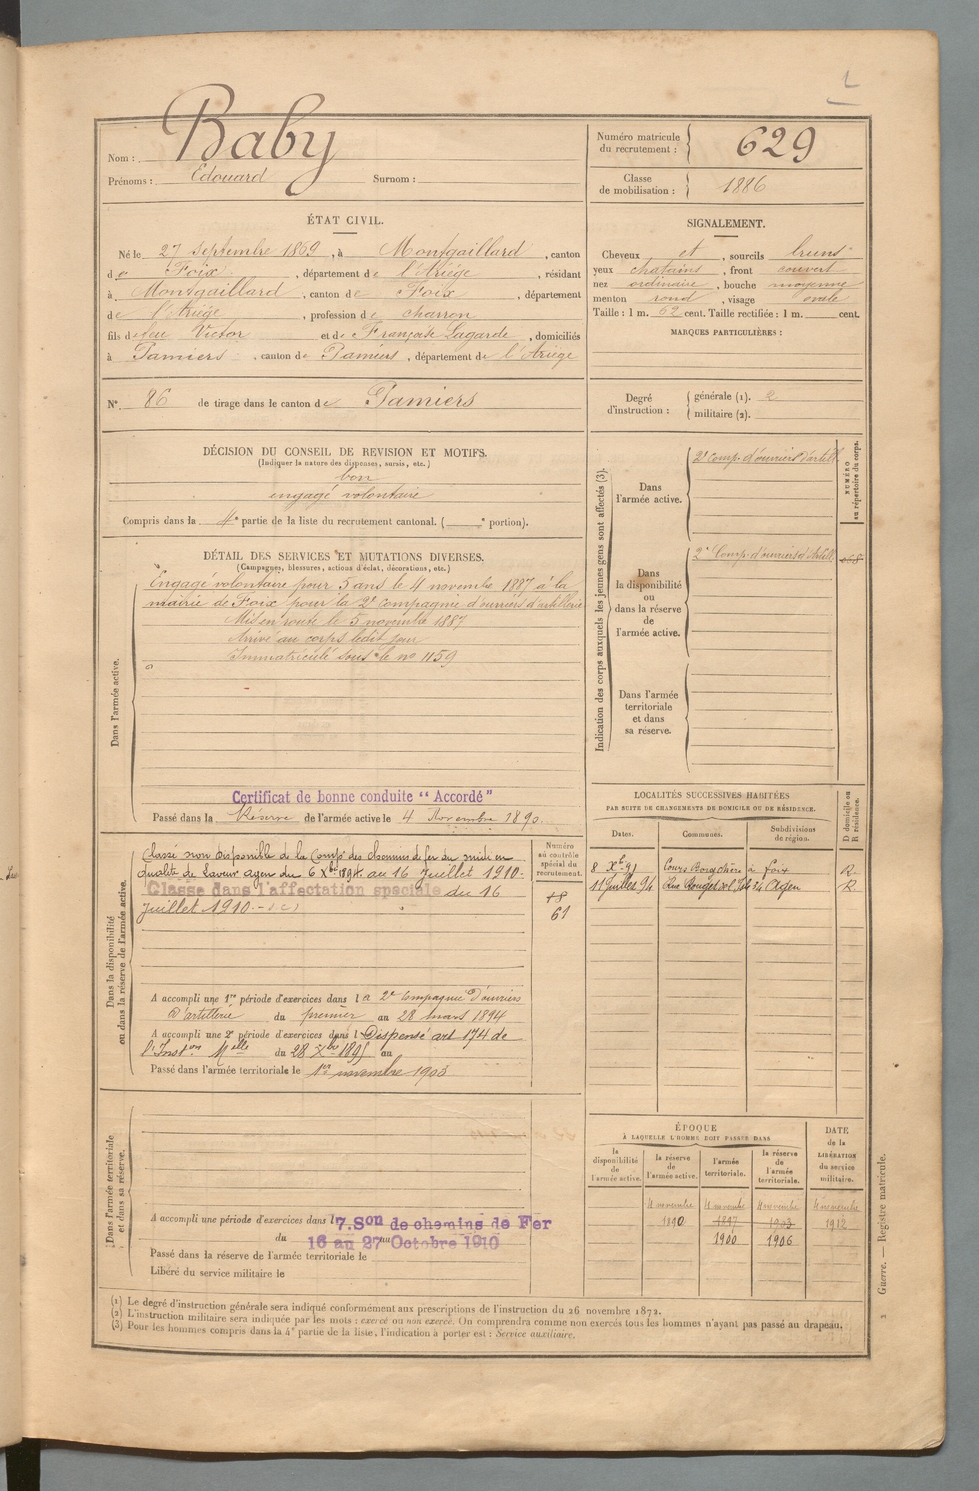 L
Nom : Baby
Prénoms : Edouard Surnom :
Numéro matricule du recrutement : 629
Classe de mobilisation : 1886
ÉTAT CIVIL.
Né le 27 septembre 1869, à Montgaillard, canton
de Foix, département de l'Ariège, résidant
à Montgaillard, canton de Foix, département
de l'Ariège, profession de charron
fils de feu Victor et de Françoise Lagarde, domiciliés
à Pamiers, canton de Pamiers, département de l'Ariège
SIGNALEMENT.
Cheveux et, sourcils bruns
yeux chatains, front couvert
nez ordinaire, bouche moyenne
menton rond, visage ovale
Taille : 1 m. 62 cent. Taille rectifiée : 1 m. cent.
MARQUES PARTICULIÈRES :
N° 86 de tirage dans le canton de Pamiers
Degré d'instruction : générale (1). 2
militaire (2).
DÉCISION DU CONSEIL DE REVISION ET MOTIFS.
(Indiquer la nature des dispenses, sursis, etc.)
bon
engagé volontaire
Compris dans la 4e partie de la liste du recrutement cantonal. ( e portion).
DÉTAIL DES SERVICES ET MUTATIONS DIVERSES.
(Campagnes, blessures, actions d'éclat, décorations, etc.)
Dans l'armée active.
Engagé volontaire pour 5 ans le 4 novembre 1887 à la
mairie de Foix pour la 2e compagnie d'ouvriers d'artillerie
Mis en route le 5 novembre 1887
Arrivé au corps ledit jour
Immatriculé sous le no 1159
Certificat de bonne conduite "Accordé"
Passé dans la Réserve de l'armée active le 4 Novembre 1890.
Indication des corps auxquels les jeunes gens sont affectés (3).
NUMÉRO au répertoire du corps.
Dans l'armée active.
2e Comp. d'ouvriers d'artill.
Dans la disponibilité ou dans la réserve de l'armée active.
2e Comp. d'ouvriers d'Artill.
Dans l'armée territoriale et dans sa réserve.
Dans la disponibilité ou dans la réserve de l'armée active.
Numéro au contrôle spécial du recrutement.
Classé non disponible de la Comp. des chemins de fer du midi en
qualité de Laveur agen du 6 Xbre 1894 au 16 Juillet 1910.
Classé dans l'affectation spéciale du 16
Juillet 1910.
18
61
A accompli une 1re période d'exercices dans la 2e Compagnie d'ouvriers
d'artillerie du premier au 28 mars 1894
A accompli une 2e période d'exercices dans l Dispensé art 174 de
l'Inston Melle du 28 Xbre 1895 au
Passé dans l'armée territoriale le 1er novembre 1900
LOCALITÉS SUCCESSIVES HABITÉES
PAR SUITE DE CHANGEMENTS DE DOMICILE OU DE RÉSIDENCE.
Dates. Communes. Subdivisions de région. D domicile ou R résidence.
8 Xbre 91 à Foix R.
11 Juillet 94 Rue Rouget de l'Isle 34 Agen R.
Dans l'armée territoriale et dans sa réserve.
A accompli une période d'exercices dans l 7. Son de chemins de Fer
du 16 au 27 Octobre 1910
Passé dans la réserve de l'armée territoriale le
Libéré du service militaire le
ÉPOQUE
À LAQUELLE L'HOMME DOIT PASSER DANS
la disponibilité de l'armée active.
la réserve de l'armée active.
l'armée territoriale.
la réserve de l'armée territoriale.
DATE de la LIBÉRATION du service militaire.
4 novembre 4 novembre 4 novembre 4 novembre
1890 1897 1903 1912
1900 1906
(1) Le degré d'instruction générale sera indiqué conformément aux prescriptions de l'instruction du 26 novembre 1872.
(2) L'instruction militaire sera indiquée par les mots : exercé ou non exercé. On comprendra comme non exercés tous les hommes n'ayant pas passé au drapeau.
(3) Pour les hommes compris dans la 4e partie de la liste, l'indication à porter est : Service auxiliaire.
2 Guerre. — Registre matricule.